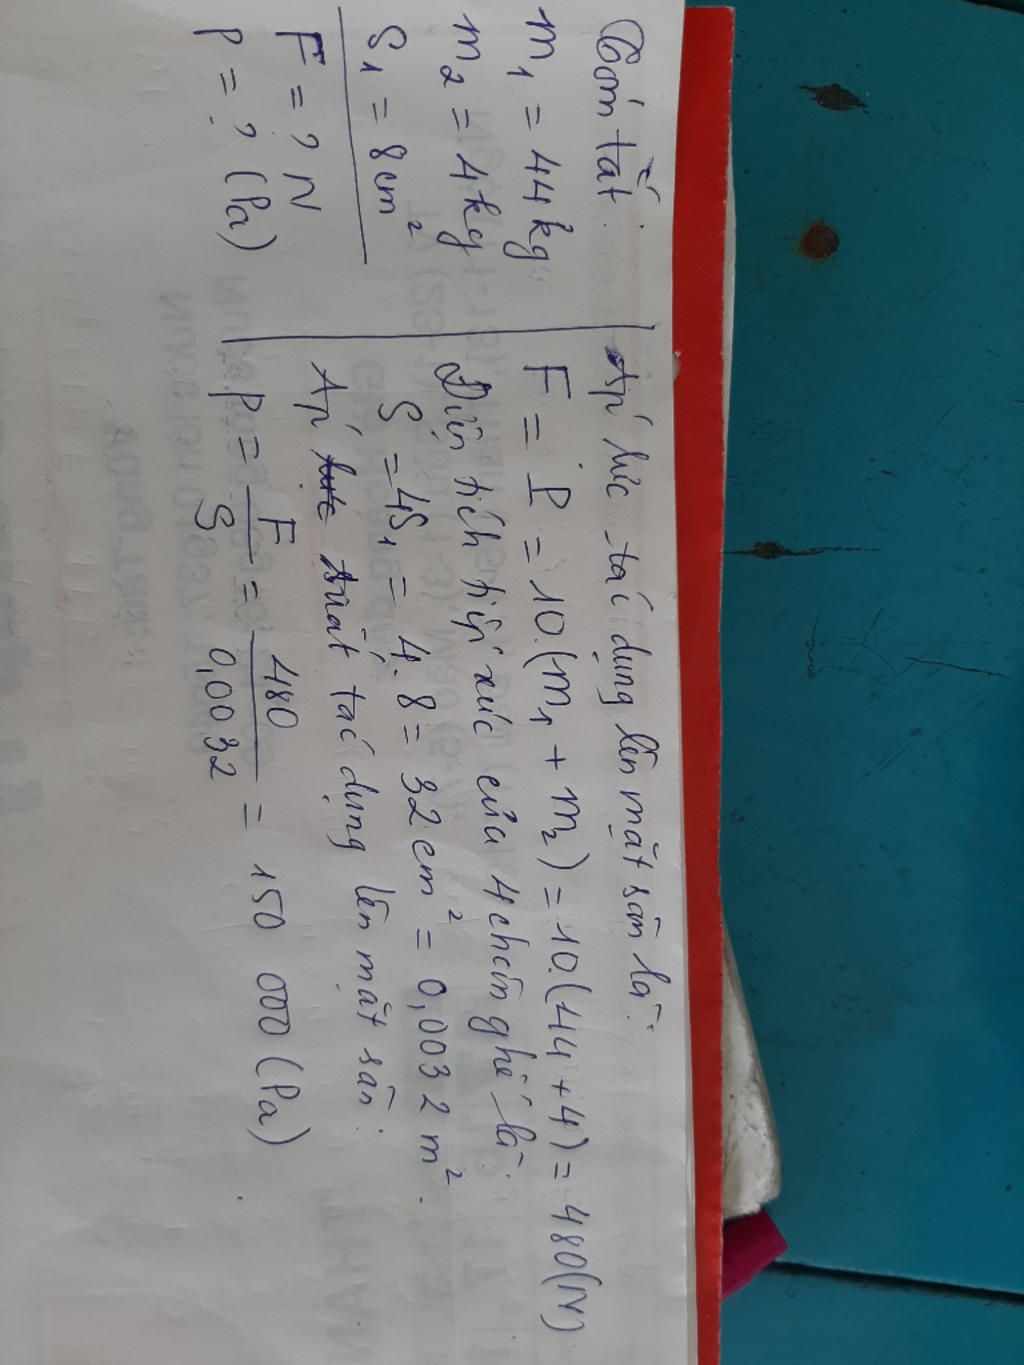 Tóm tắt.
m₁ = 44kg
m₂ = 4kg
S₁ = 8cm²
F = ? N
P = ? (Pa)
Áp lực tác dụng lên mặt sàn là:
F = P = 10.(m₁ + m₂) = 10.(44 + 4) = 480(N)
Diện tích tiếp xúc của 4 chân ghế là:
S = 4S₁ = 4.8 = 32cm² = 0,0032m².
Áp suất tác dụng lên mặt sàn:
P = F/S = 480/0,0032 = 150 000 (Pa)